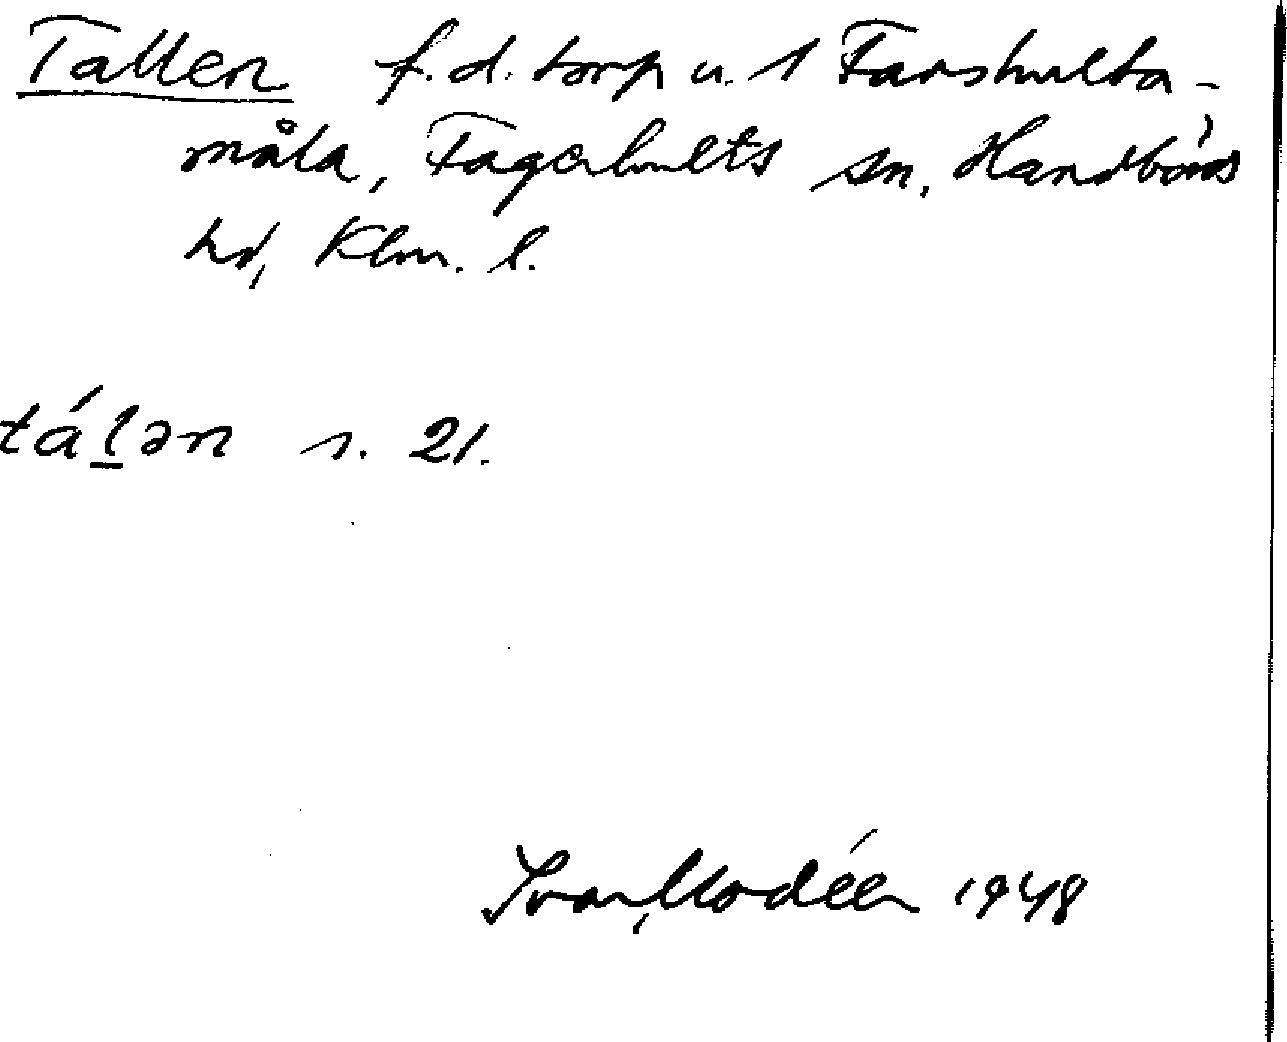 Tallen f.d. torp u. 1 Farshulta-
måla, Fagerhults sn, Handbörds
hd, Klm. l.
tál̲ən s. 21.
Ivar Modéer 1948